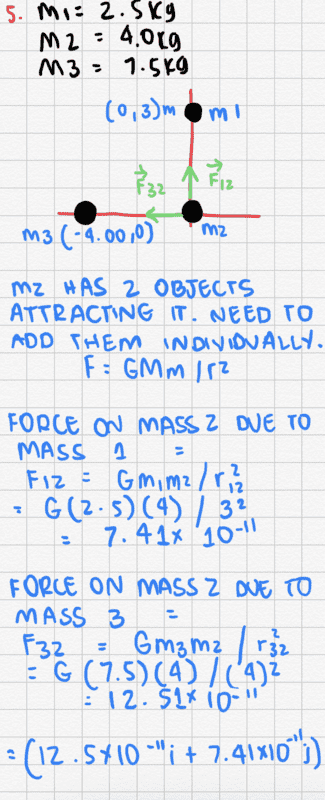 5. m1 = 2.5kg
m2 = 4.0kg
m3 = 7.5kg
(0,3)m m1
F⃗32 F⃗12
m3 (-4.00,0) m2
m2 HAS 2 OBJECTS
ATTRACTING IT. NEED TO
ADD THEM INDIVIDUALLY.
F = GMm/r2
FORCE ON MASS 2 DUE TO
MASS 1 =
F12 = Gm1m2/r²12
= G(2.5)(4) / 3²
= 7.41x 10⁻¹¹
FORCE ON MASS 2 DUE TO
MASS 3 =
F32 = Gm3m2 / r²32
= G (7.5)(4) /(4)²
= 12.51x 10⁻¹¹
= (12.5x10⁻¹¹i + 7.41x10⁻¹¹j)